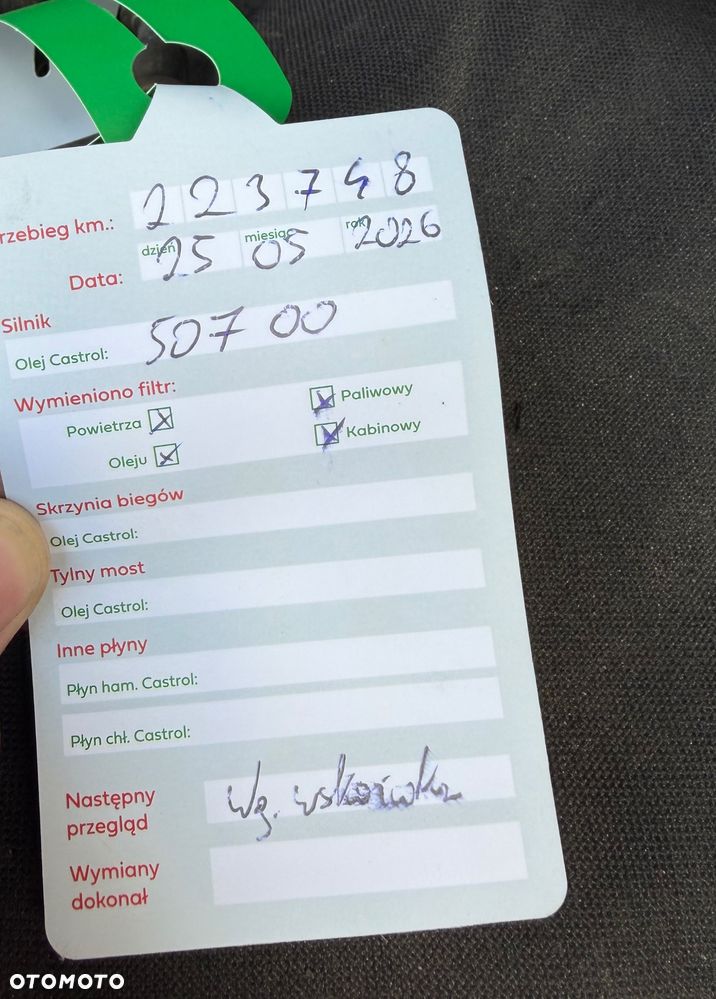 rzebieg km.: 223748
Data: dzień 25 miesiąc 05 rok 2026
Silnik
Olej Castrol: 507 00
Wymieniono filtr:
Powietrza X Paliwowy X
Oleju X Kabinowy X
Skrzynia biegów
Olej Castrol:
Tylny most
Olej Castrol:
Inne płyny
Płyn ham. Castrol:
Płyn chł. Castrol:
Następny
przegląd
Wg. wskaźnika
Wymiany
dokonał
OTOMOTO